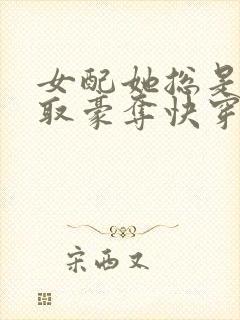 女配她总是
取豪夺快穿
宋西又